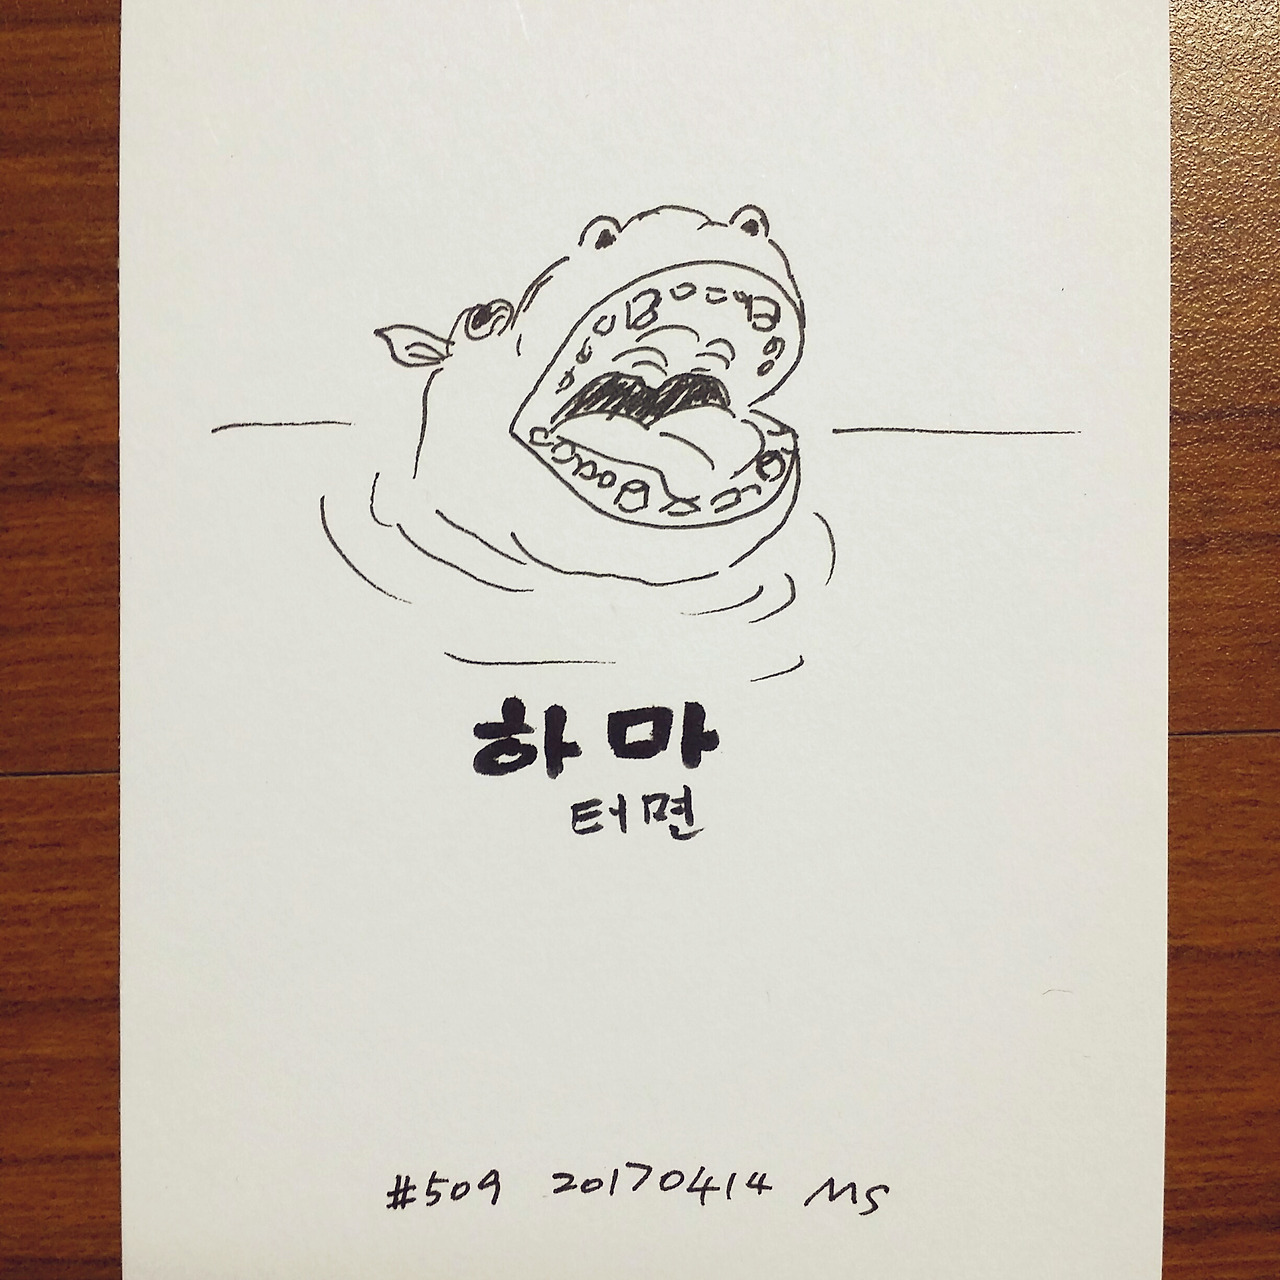 하마
터면
#509 20170414 MS